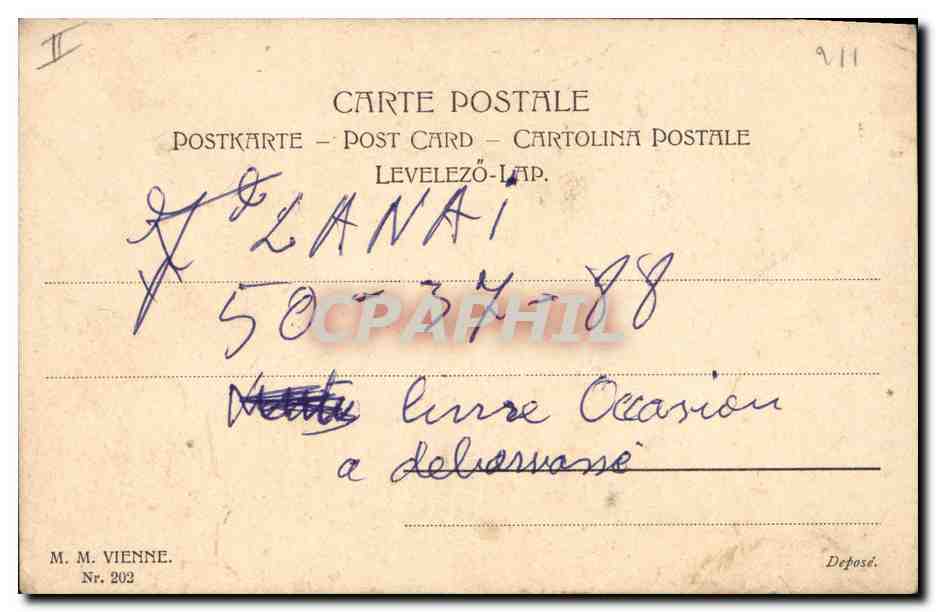 II
211
CARTE POSTALE
POSTKARTE – POST CARD – CARTOLINA POSTALE
LEVELEZŐ-LAP.
LANAI
50-37-88
CPAPHIL
livre Occasion
a debarrassé
M. M. VIENNE.
Nr. 202
Deposé.